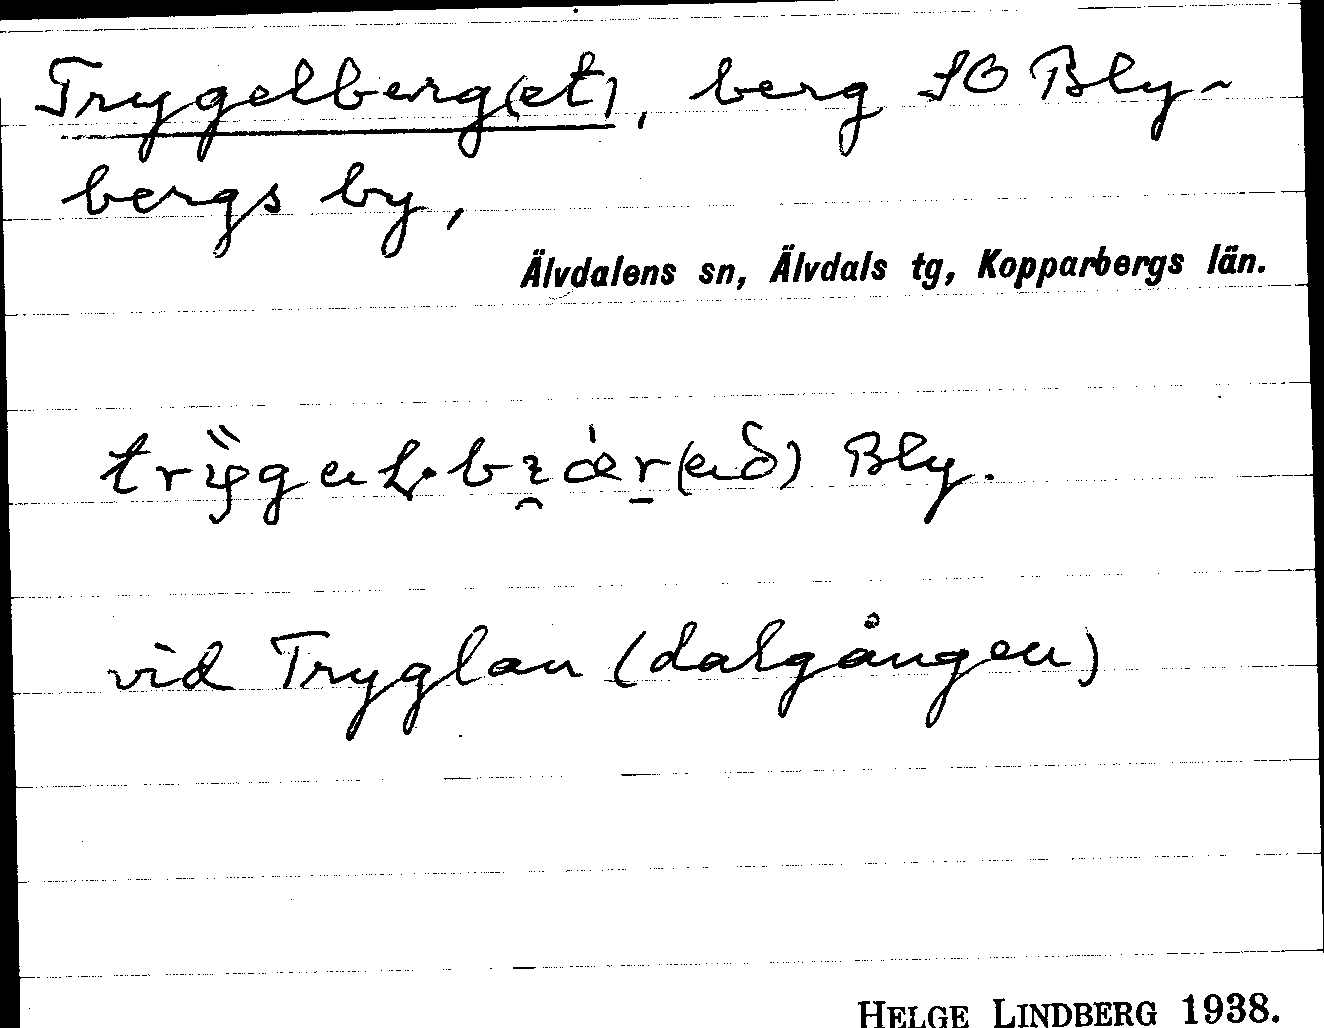 Trygelberg(et), berg SO Bly-
bergs by,
Älvdalens sn, Älvdals tg, Kopparbergs län.
Bly.
vid Tryglan (dalgången)
HELGE LINDBERG 1938.